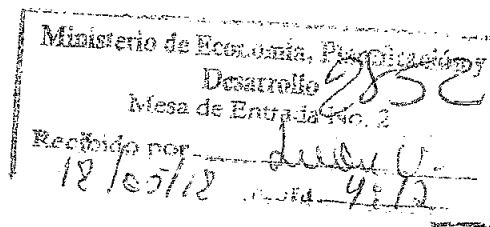 Ministerio de Economía, Planificación y
Desarrollo 2852
Mesa de Entrada No. 2
Recibido por
18/05/18